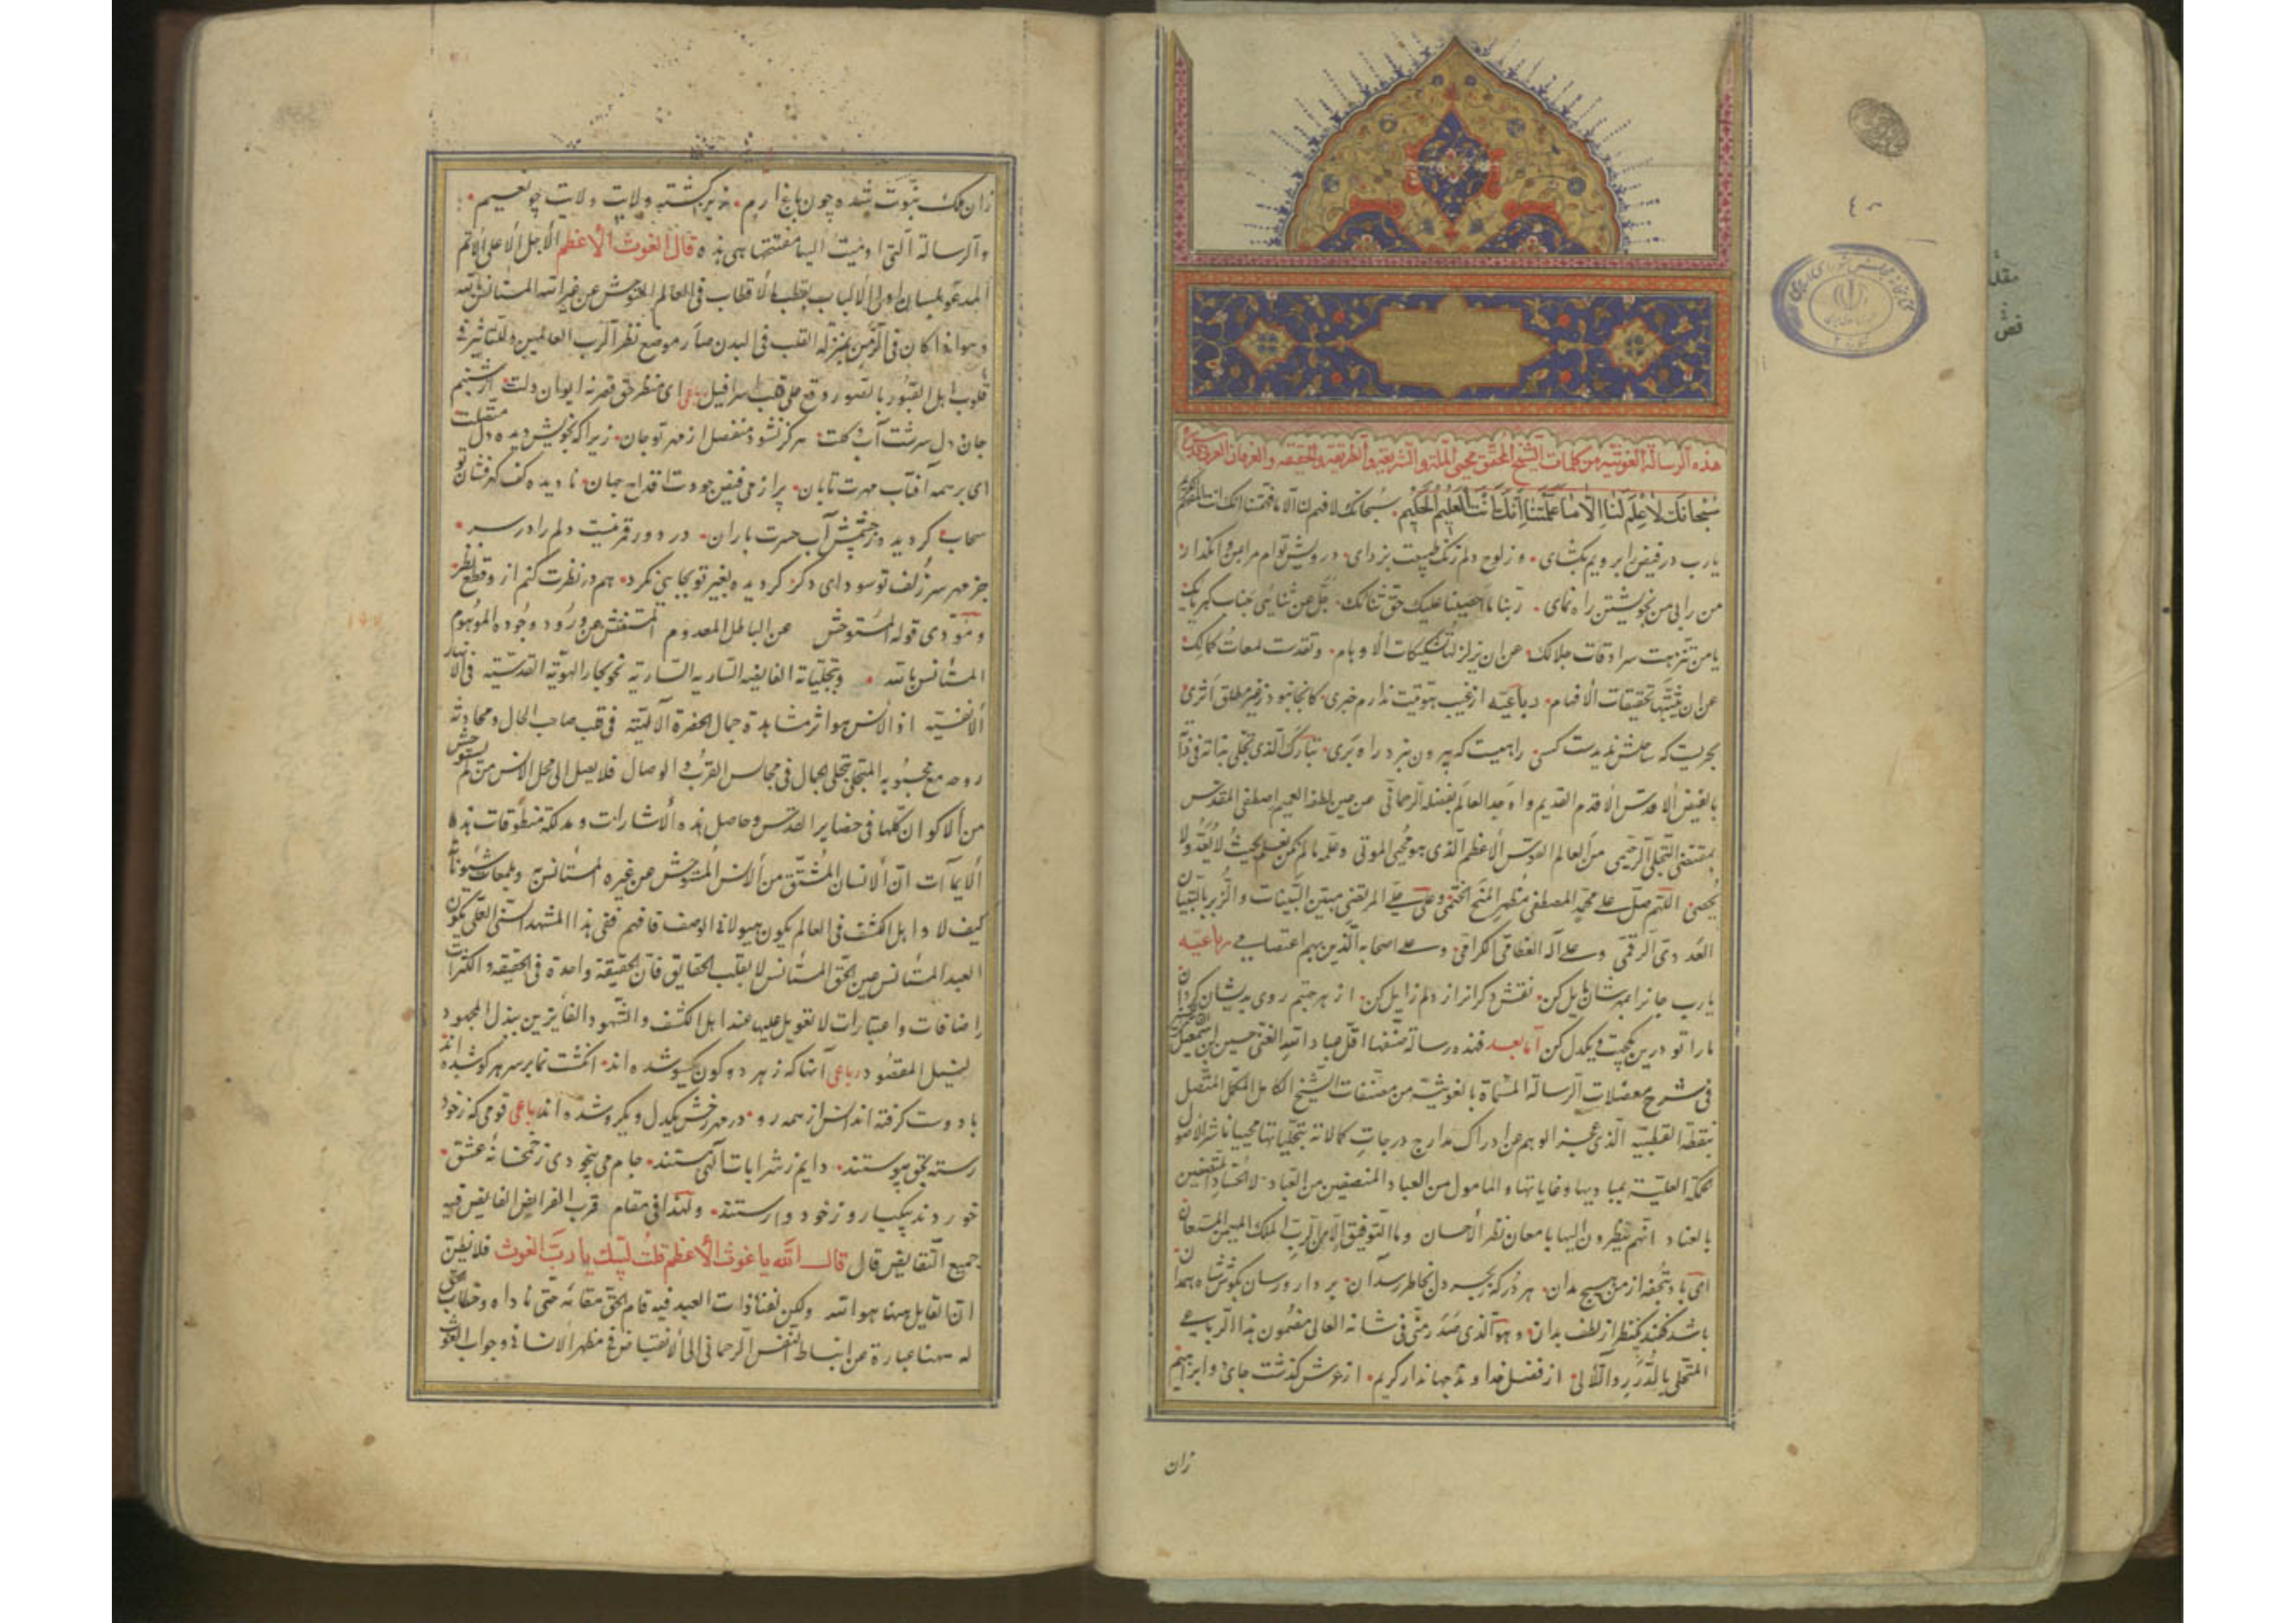 هذه الرسالة الغوثیه من کلمات الشیخ المحقق محیی الملة و الشریعة و الطریقة و الحقیقه و العرفان
سُبْحانَكَ لا عِلْمَ لَنا اِلّا ما عَلَّمْتَنا اِنَّكَ اَنْتَ الْعَلیمُ الْحَکیمُ سُبحانك لا فهم لنا الا ما فهمتنا انك انت
یارب در فیض را برویم بگشای وز لوح دلم زنگ طبیعت بزدای درویش توام مرا بمن وامگذار
من رابی من بخویشتن راه نمای ربنا ما احصینا علیك حق ثنائك جل عن ثنائی جناب کبریائك
یا من تنزهت سرادقات جلالك عن ان یزلزلها تشکیکات الاوهام وتقدست لمعات کمالك
عن ان تحقیقات الافهام رباعیه از غیب هویتت ندارم خبری کانجا نبود ز غیر مطلق اثری
بحریست که ساحلش ندیدست کسی راهیست که پیرون نبرد راه بری تبارك الذی تجلی بذاته فی ذاته
بالفیض الاقدس الاقدم القدیم واوجد العالم بفضله الرحمانی عن عین لطفه العمیم اصطفی المقدس
بمقتضی التجلی الرحیمی من العالم القدس الاعظم الذی هو محیی الموتی وعلمه ما لم یکن یعلم بحیث لا یعد ولا
یحصی اللهم صل علی محمد المصطفی مظهر المنح الختمی وعلی علی المرتضی مبین البینات والزبر بالتبیان
العددی الرقمی وعلی آله وعلی اصحابه الذین بهم اعتصامی رباعیه
یارب جانرا بمهرشان مایل کن نقش دگرانرا ز دلم زایل کن از هر جهتم روی بدیشان گردان
مارا تو درین یکدل کن اما بعد فهذه رسالة صنفها اقل عباد الله الغنی حسین ابن اسمعیل
فی شرح معضلات الرسالة المسماة بالغوثیة من مصنفات الشیخ الکامل المکمل المتصل
بنقطة القطبیه الذی عجز الوهم عن ادراك مدارج درجات کمالاته بتجلیاتها
بمبادیها وغایاتها والمامول من العباد المنصفین من العباد
بالعناد انهم ینظرون الیها بامعان نظر الاحسان وما التوفیق الا من الرب الملك المهیمن المستعان
ای باد تحفه از من هیچ مدان هر در که ز بحر دل بخاطر رسد آن بردار و رسان بگوش شاه همدان
باشد که کند نظر از لطف بدان وهو الذی صدر منی فی شانه العالی مضمون هذا الرباعی
المتحلی بالدرر واللآلی از فضل خداوند جهاندار کریم از عرش گذشت جای ابراهیم
زان
زان ملك نبوت شده چون باغ ارم ولایت ولایت چو نعیم
والرسالة التی اومیت الیها مفتتحها هی هذه قال الغوث الاعظم الاجل الاعلی الاتم
المدعو بلسان اولی الالباب بقطب الاقطاب فی العالم المتوحش عن غیر الله المستانس بالله
وهو اذا کان فی الزمن بمنزلة القلب فی البدن صار موضع نظر الرب العالمین
قلوب اهل القبور بالقبور وقع علی قلب اسرافیل ای منظر حق ایوان دلت
جان و دل سرشت آب و گلت هرگز نشود منفصل از مهر تو جان زیرا که بخویش دیده دل متصلت
ای بر همه آفتاب مهرت تابان پر از می فیض جودت اقداح جهان نادیده کف گهرفشان تو
سحاب گردید ز چشمش آب حسرت باران در دور قمر نیست دلم را در سر
جز مهر سر زلف تو سودای دگر کردیده بغیر تو بجایی نگرد هم در نظرت کنم ازو قطع نظر
ومؤدی قوله المستوحش عن الباطل المعدوم عن ورود وجوده الموهوم
المستانس بالله وتجلیاته الفایضه الساریه نحو بحار الهویة القدسیة فی
الانفسیه اذ الانس هو اثر مشاهدة جمال الحضرة الالهیه فی قلب صاحب الحال ومحادثة
روحه مع محبوبه المتجلی بتجلی الجمال فی مجالس القرب والوصال فلا یصل الی محل الانس من لم یستوحش
من الاکوان کلها فی حضایر القدس وحاصل هذه الاشارات ومدرکة منطوقات هذه
الایماآت ان الانسان المشتق من الانس المتوحش عن غیره المستانس
کیف لا واهل الکشف فی العالم یکون فافهم ففی هذا المشهد السنی العلی یکون
العبد المستانس عین الحق المستانس لا بقلب الحقایق فان الحقیقة واحدة فی الحقیقه والکثرات
اضافات واعتبارات لا تعویل علیها عند اهل الکشف والشهود الفایزین ببذل المجهود
لنیل المقصود رباعی آنها که ز هر دو کون یکسو شده اند انگشت نما بر سر هر کو شده اند
با دوست گرفته اند انس از همه رو در مهر رخش یکدل و یکرو شده اند رباعی قومی که ز خود
رسته بحق پیوستند دایم ز شرابات الهی مستند جام می بیخودی ز خمخانه عشق
خوردند یکبار و ز خود وارستند ولهذا فی مقام قرب الفرایض الفایض فیه
جمیع النقایض قال قال الله یا غوث الاعظم قلت لبیك یا رب الغوث فلا تظن
ان القایل ههنا هو الله ولکن لفناء ذات العبد فیه قام الحق مقامه حتی ناداه وخطاب الحق
له ههنا عبارة عن انبساط النفس الرحمانی الی الانقباض فی مظهر الانسانی وجواب الغوث